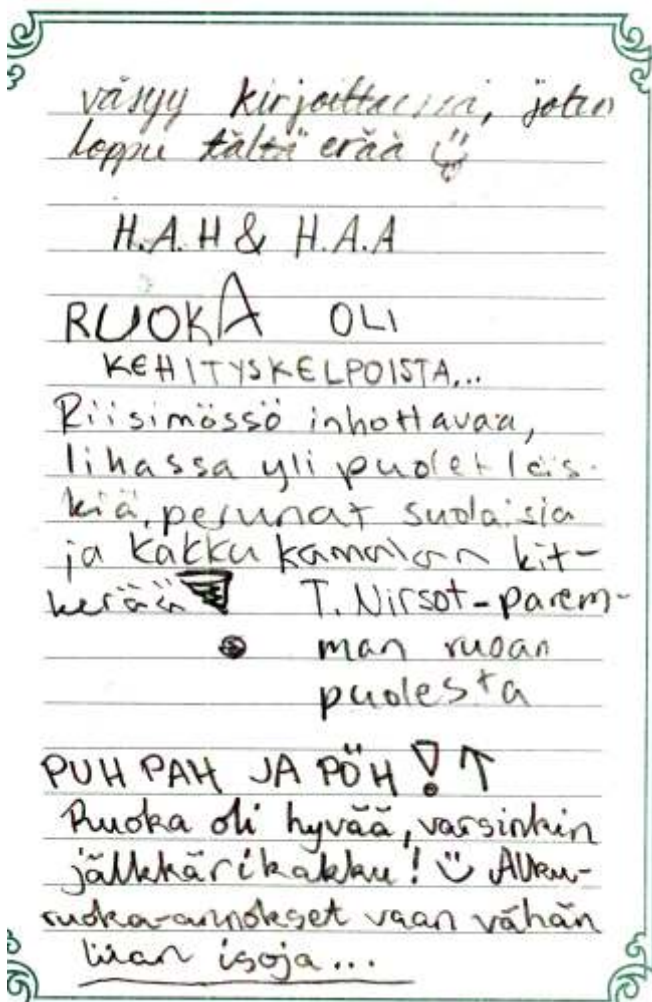 väsyy kirjoittaessa, joten
loppu tältä erää
H.A.H & H.A.A
RUOKA OLI
KEHITYSKELPOISTA...
Riisimössö inhottavaa,
lihassa yli puolet läs-
kiä, perunat suolaisia
ja kakku kamalan kit-
kerää!!!
T. Nirsot - parem-
man ruoan
puolesta
PUH PAH JA PÖH! ↑
Ruoka oli hyvää, varsinkin
jälkkärikakku! Alku-
ruoka-annokset vaan vähän
liian isoja...